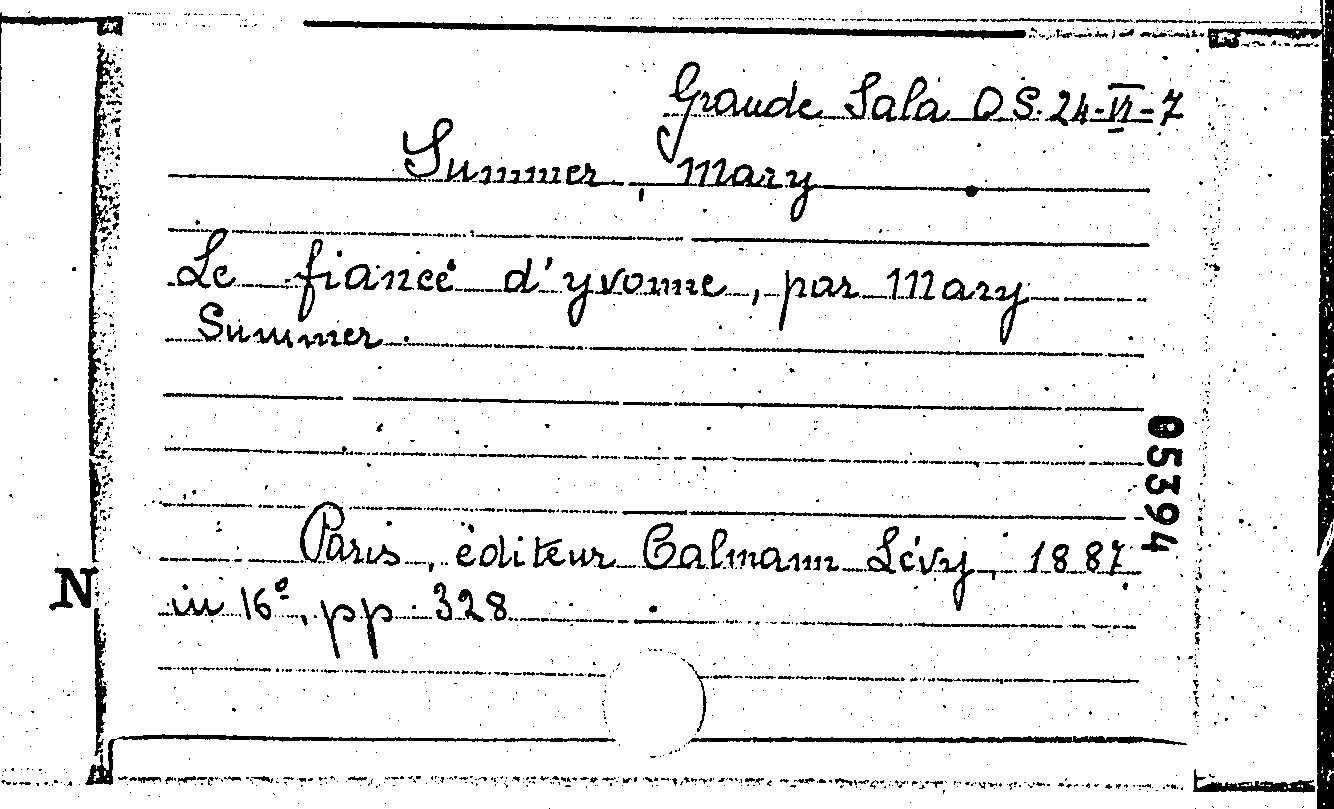 Grande Sala O S. 24-VI-7
Summer, Mary
Le fiancé d'yvonne, par Mary
Summer.
05394
Paris, éditeur Calmann Lévy, 1887
in 16º, pp. 328
N